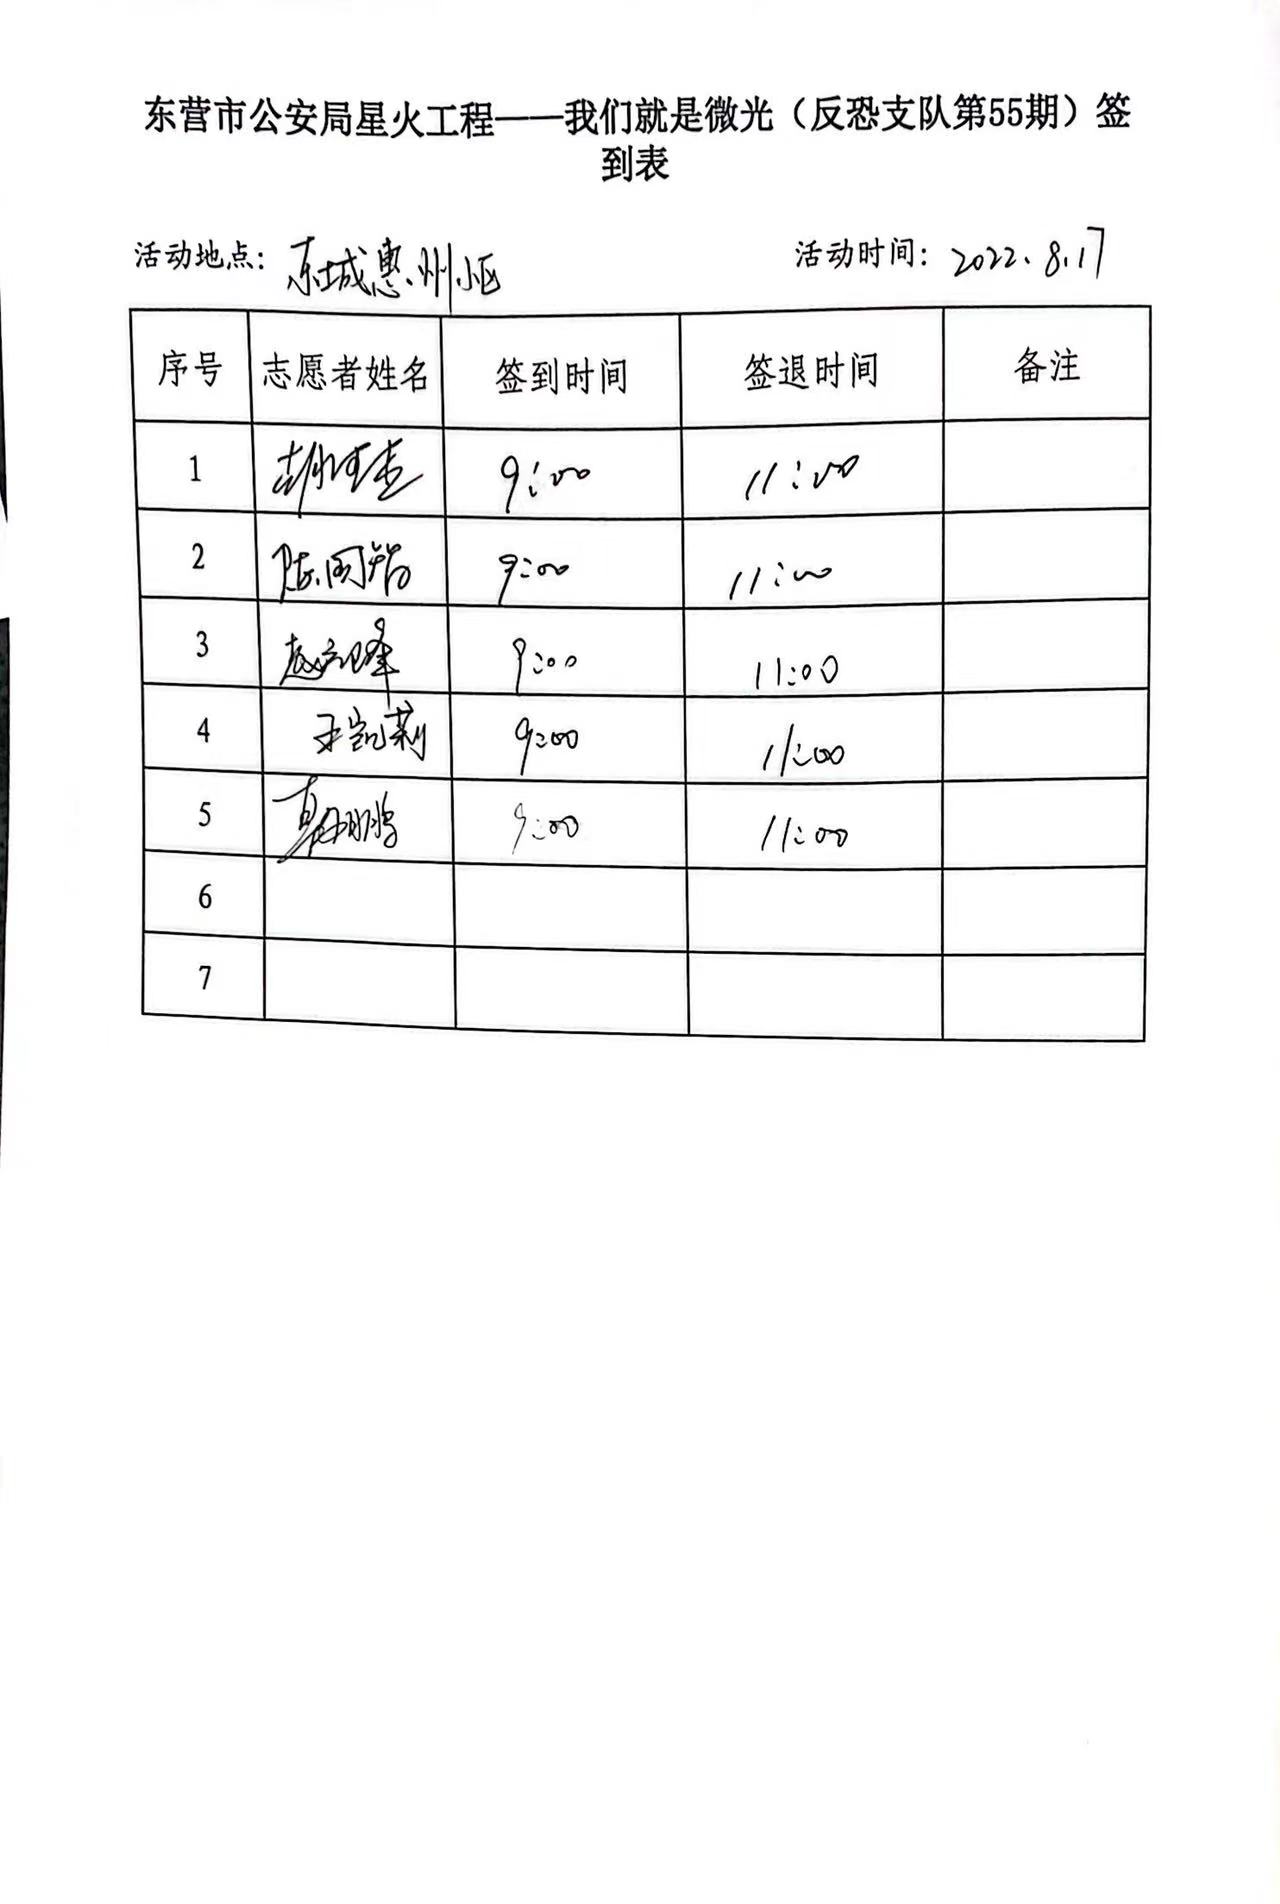 东营市公安局星火工程——我们就是微光（反恐支队第55期）签
到表
活动地点：东城惠州小区 活动时间：2022.8.17
序号 志愿者姓名 签到时间 签退时间 备注
1 9:00 11:00
2 陈国智 9:00 11:00
3 9:00 11:00
4 王凯莉 9:00 11:00
5 9:00 11:00
6
7